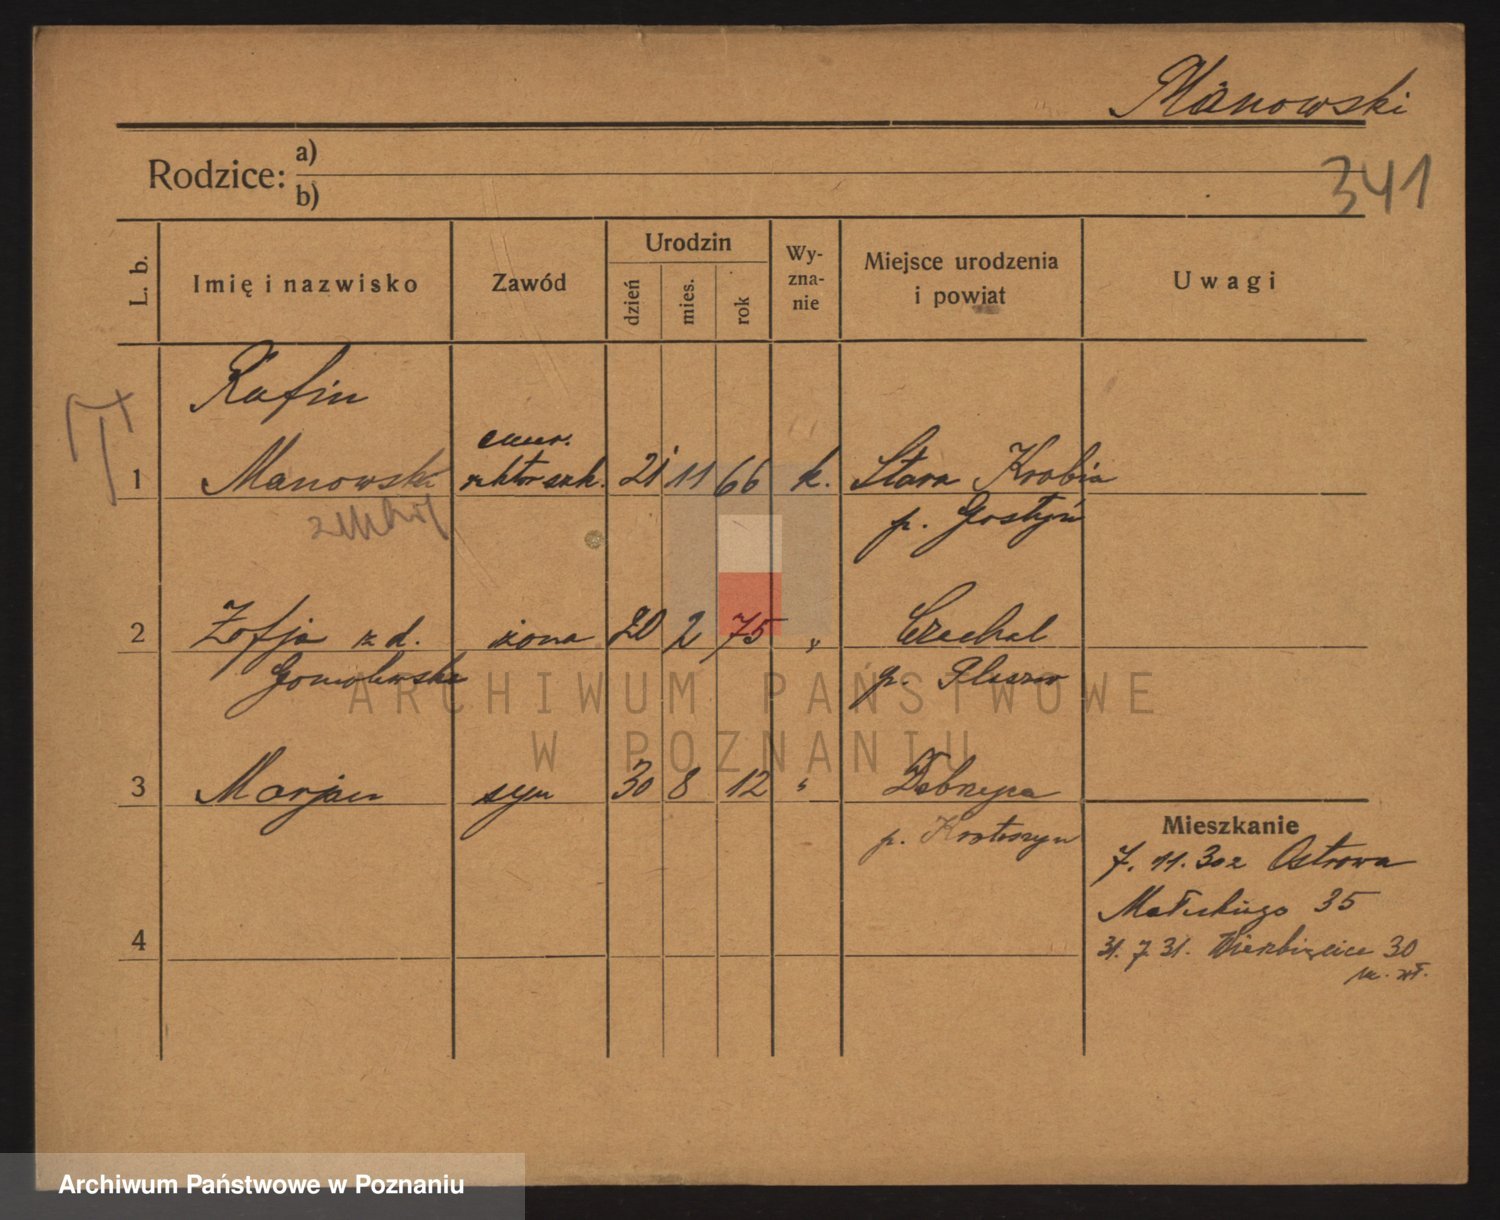 Manowski
341
Rodzice: a)
b)
L. b.
Imię i nazwisko
Zawód
Urodzin
dzień
mies.
rok
Wy-
zna-
nie
Miejsce urodzenia
i powiat
Uwagi
Rafin
emer.
1 Manowski rektor szk. 21 11 66 k. Stara Krobia
p. Gostyń
2 Zofja z d. żona 20 2 75 " Czachal
Gomolewska p. Pleszew
3 Marjan syn 30 8 12 " Dobrzyca
p. Krotoszyn
Mieszkanie
7. 11. 302 Ostrowa
Małeckiego 35
4
31. 7. 31. Wierzbięcice 30
m. wł.
ARCHIWUM PAŃSTWOWE
W POZNANIU
Archiwum Państwowe w Poznaniu